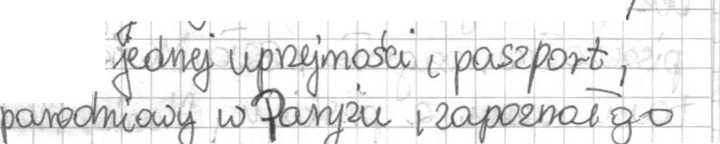 jednej uprzejmości i paszport,
parodniowy w Paryżu, zapoznał go